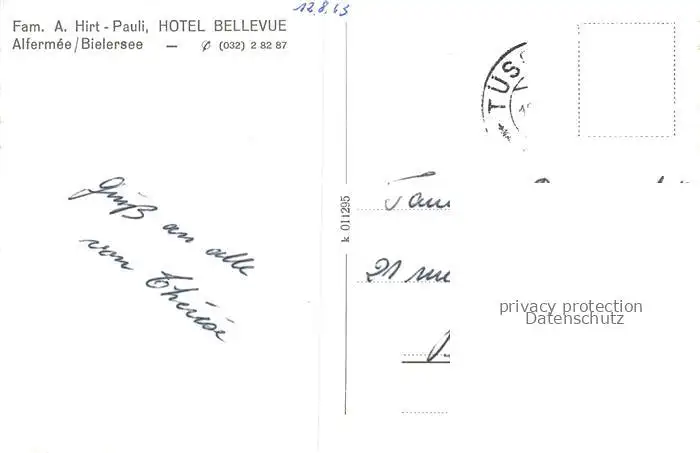 12.8.63
Fam. A. Hirt - Pauli, HOTEL BELLEVUE
Alfermée/Bielersee — ✆ (032) 2 82 87
TÜSS
Gruß an alle
von Thérèse
k 011295
21 rue
privacy protection
Datenschutz